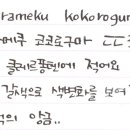 rameku kokorogu
메쿠 코코로구마 ㄷㄷ
클레르퐁텐에 적어요
갈색으로 색변화를 보여
의 앙금..